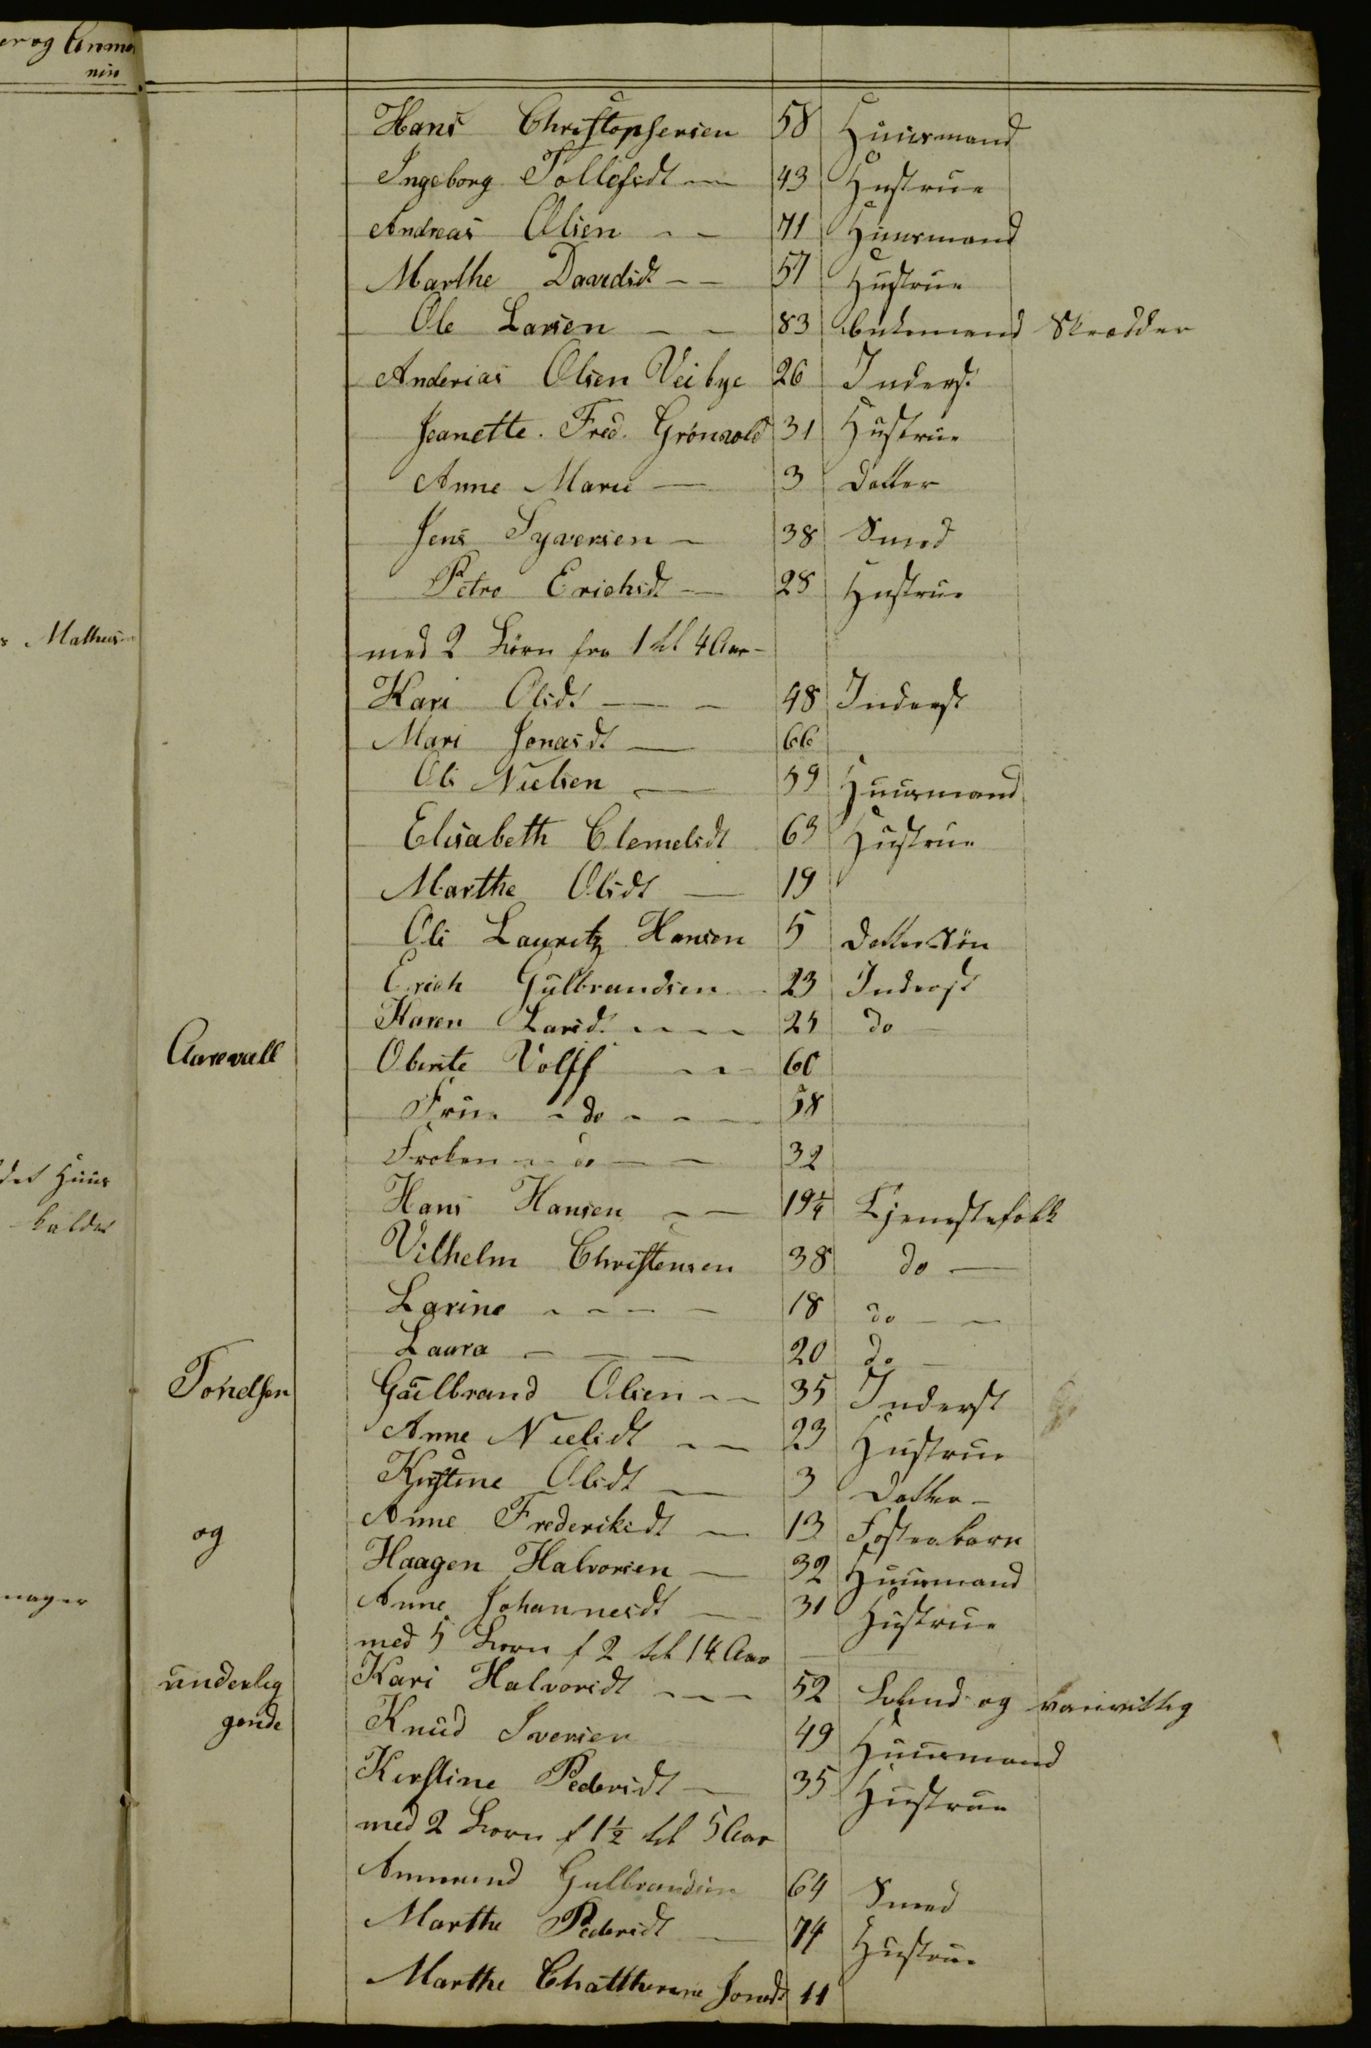 er og Anme
nin
s Mathus
det Huus
holder
nager
Hans Christophersen 58 Huusmand
Ingeborg Tollefsdt — 43 Hustrue
Andreas Olsen - - 71 Huusmand
Marthe Davidsdt - - 57 Hustrue
Ole Larsen - - 83 Enkemand Skrædder
Anderias Olsen Veibye 26 Inderst
Jeanette. Fred. Grönvold 31 Hustrue
Anne Marie — 3 Datter
Jens Syversen - 38 Smed
Petro Erichsdt - 28 Hustrue
med 2 Börn fra 1 til 4 Aar -
Kari Olsdt — - 48 Inderst
Mari Jonasdt — 66
Ole Nielsen — 59 Huusmand
Elisabeth Clemetsdt 63 Hustrue
Marthe Olsdt — 19
Ole Lauritz Hansen 5 Dattersön
Erich Gulbrandsen 23 Inderst
Karen Larsdt - - - - 25 do -
Aarevall Oberste Volff - - 60
Frue - do - - - 58
Froken - do - - 32
Hans Hansen - - 19¼ Tjenestefolk
Vilhelm Christensen 38 do —
Larine - - - - 18 do - -
Laura - - - 20 do -
Tonelsen Gulbrand Olsen - - 35 Inderst
Anne Nielsdt - - 23 Hustrue
Kirstine Olsdt — 3 Datter -
og Anne Frederiksdt — 13 Fosterbarn
Haagen Halvorsen — 32 Huusmand
Anne Johannesdt — 31 Hustrue
med 5 Born f 2 til 14 Aar
underlig Kari Halvorsdt - - - 52 blind og vanvittig
gende Knud Iversen 49 Huusmand
Kirstine Pedersdt - 35 Hustrue
med 2 Born f 1½ til 5 Aar
Ammund Gulbrandsen 64 Smed
Marthe Pedersdt — 74 Hustrue
Marthe Chatthrine Jonsdt 11